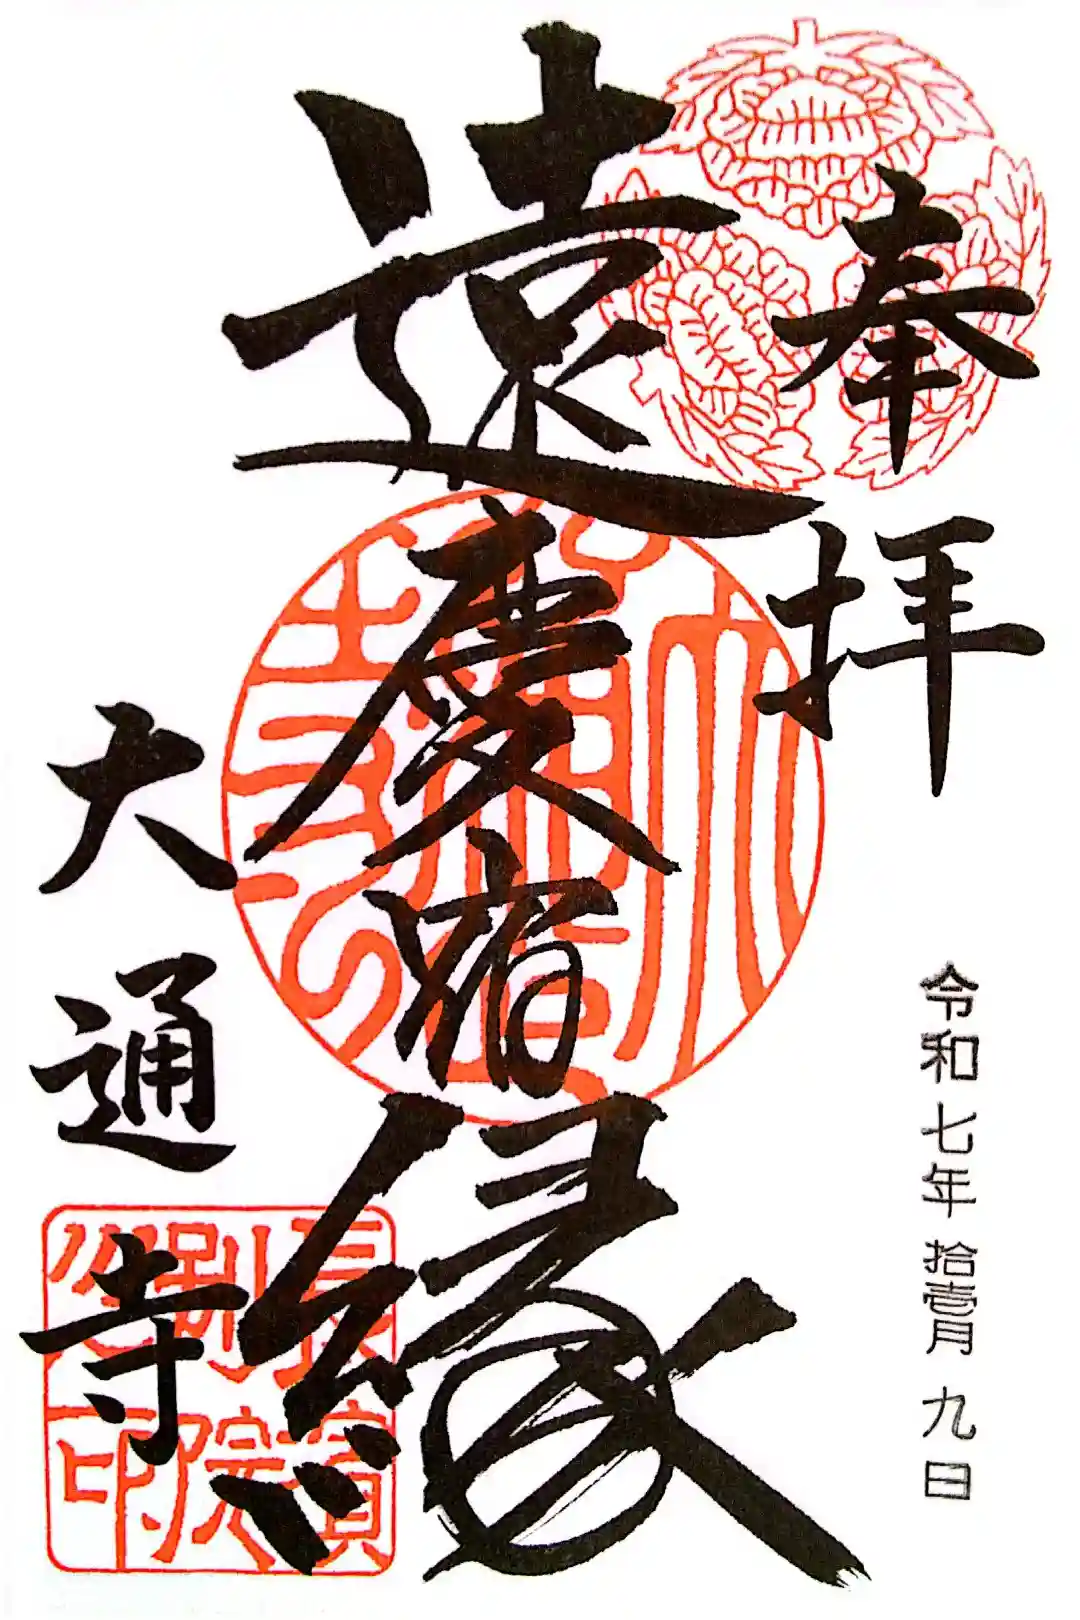 奉拝
令和七年 拾壱月 九日
遠慶宿縁
大通寺
長濱
別院
之印